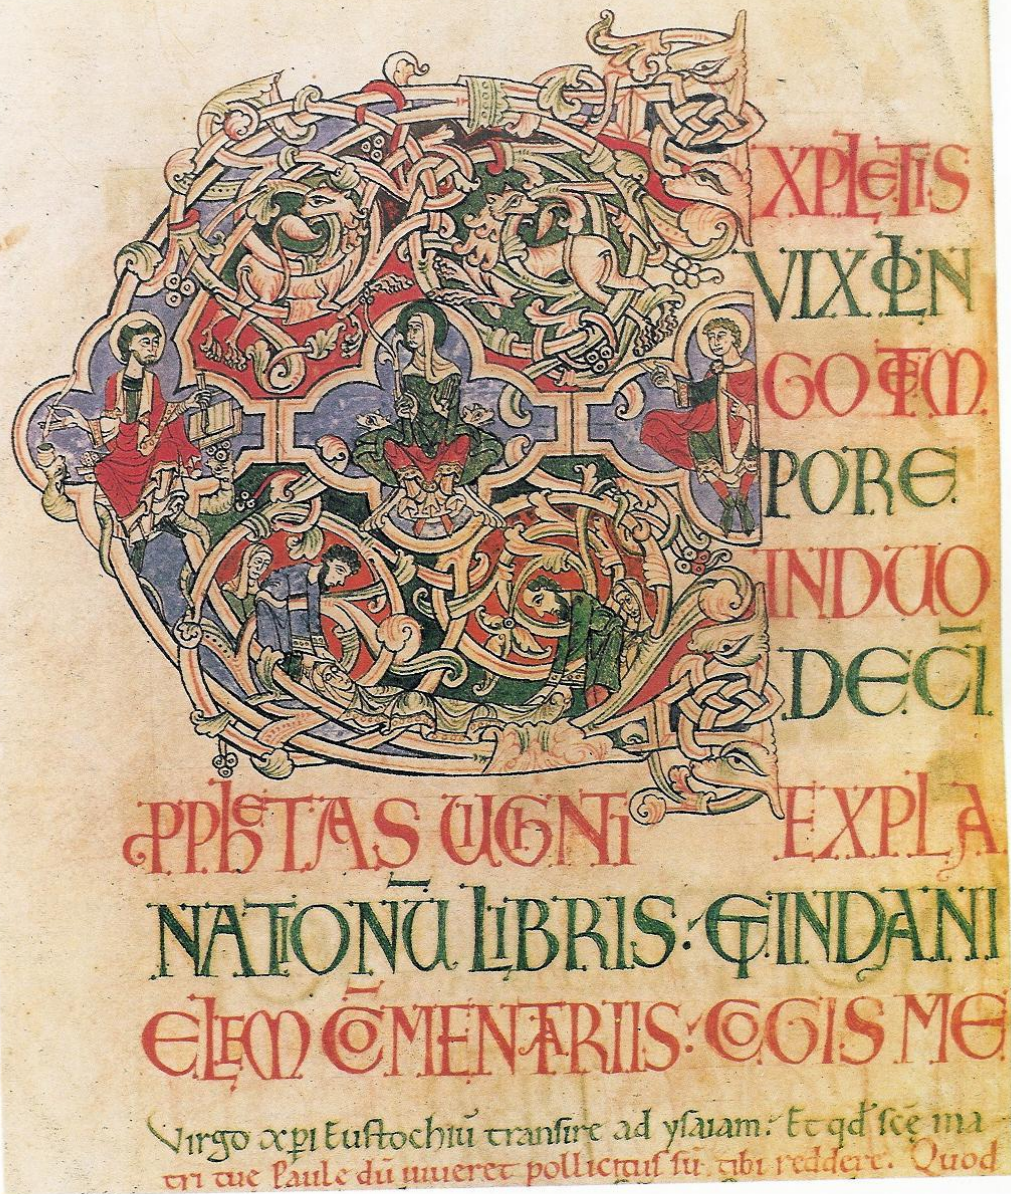 EXPLETIS
VIX LON
GO TEM
PORE
IN DUO
DECĪ
PPHETAS UIGNTI
EXPLA
NATIONŪ LIBRIS: ET IN DANI
ELEM COM̄ENTARIIS: COGIS ME
Virgo xpi Eustochiū transire ad ysaiam: Et qđ scę ma
tri tue Paule dū uiueret pollicitus sū. tibi reddere. Quod